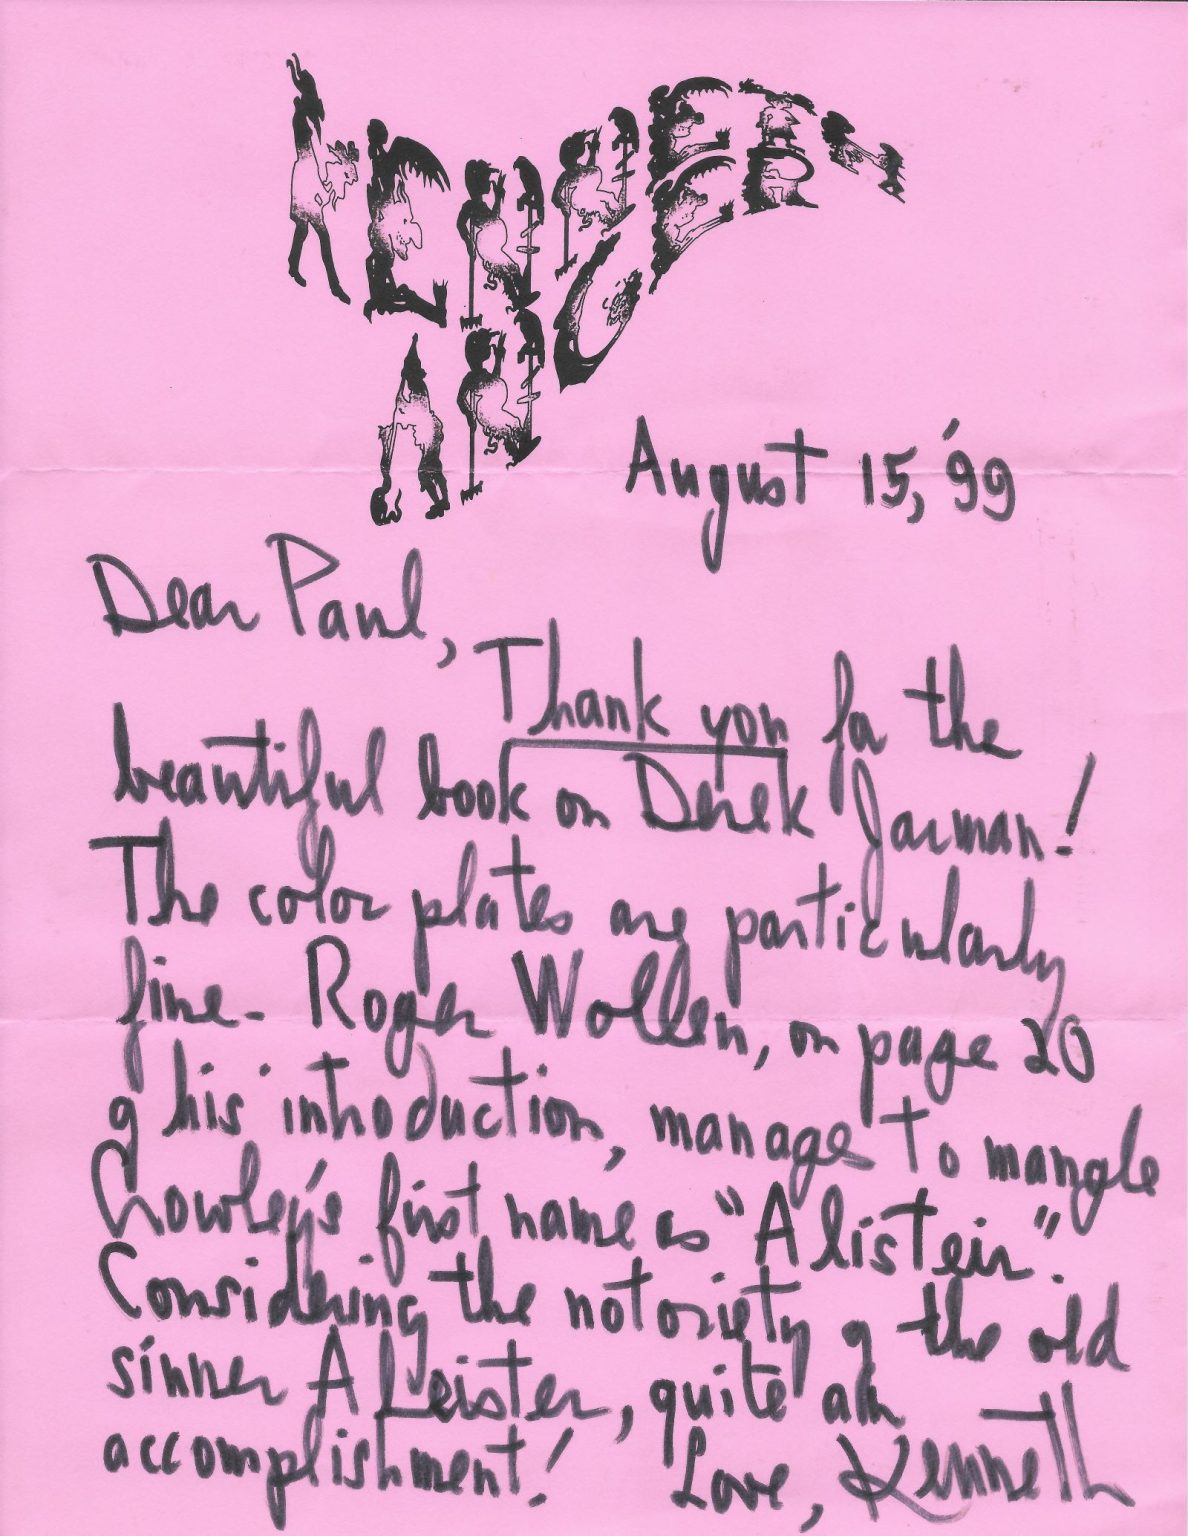 KENNETH
ANGER
August 15, '99
Dear Paul,
Thank you for the
beautiful book on Derek Jarman!
The color plates are particularly
fine - Roger Wollen, on page 20
of his introduction, manages to mangle
Crowley's first name as "Alisteir."
Considering the notoriety of the old
sinner ALeister, quite an
accomplishment! Love, Kenneth